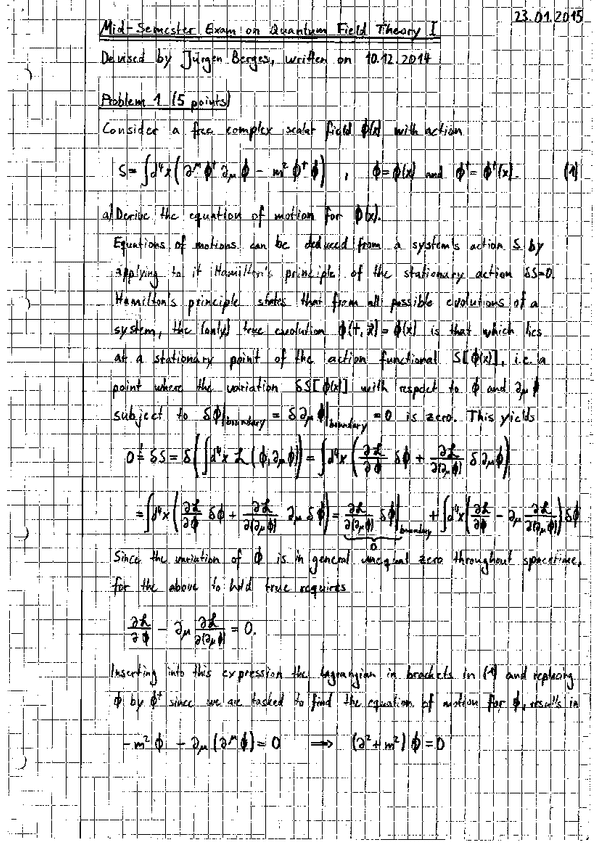 23.01.2015
Mid-Semester Exam on Quantum Field Theory I
Devised by Jürgen Berges, written on 10.12.2014
Problem 1 (5 points)
Consider a free complex scalar field ϕ(x) with action
S = ∫d⁴x (∂^μ ϕ† ∂_μ ϕ − m² ϕ† ϕ) , ϕ = ϕ(x) and ϕ† = ϕ†(x). (1)
a) Derive the equation of motion for ϕ(x).
Equations of motions can be deduced from a system's action S by
applying to it Hamilton's principle of the stationary action δS=0.
Hamilton's principle states that from all possible evolutions of a
system, the (only) true evolution ϕ(t, x⃗) = ϕ(x) is that which lies
at a stationary point of the action functional S[ϕ(x)], i.e. a
point where the variation δS[ϕ(x)] with respect to ϕ and ∂_μ ϕ
subject to δϕ|_boundary = δ ∂_μ ϕ|_boundary = 0 is zero. This yields
0 != δS = δ(∫d⁴x ℒ(ϕ, ∂_μ ϕ)) = ∫d⁴x (∂ℒ/∂ϕ δϕ + ∂ℒ/∂(∂_μ ϕ) δ ∂_μ ϕ)
= ∫d⁴x (∂ℒ/∂ϕ δϕ + ∂ℒ/∂(∂_μ ϕ) ∂_μ δϕ) = ∂ℒ/∂(∂_μ ϕ) δϕ|_boundary + ∫d⁴x (∂ℒ/∂ϕ − ∂_μ ∂ℒ/∂(∂_μ ϕ)) δϕ
0
Since the variation of ϕ is in general unequal zero throughout spacetime,
for the above to hold true requires
∂ℒ/∂ϕ − ∂_μ ∂ℒ/∂(∂_μ ϕ) = 0.
Inserting into this expression the Lagrangian in brackets in (1) and replacing
ϕ by ϕ† since we are tasked to find the equation of motion for ϕ, results in
− m² ϕ − ∂_μ (∂^μ ϕ) = 0 ⟹ (∂² + m²) ϕ = 0